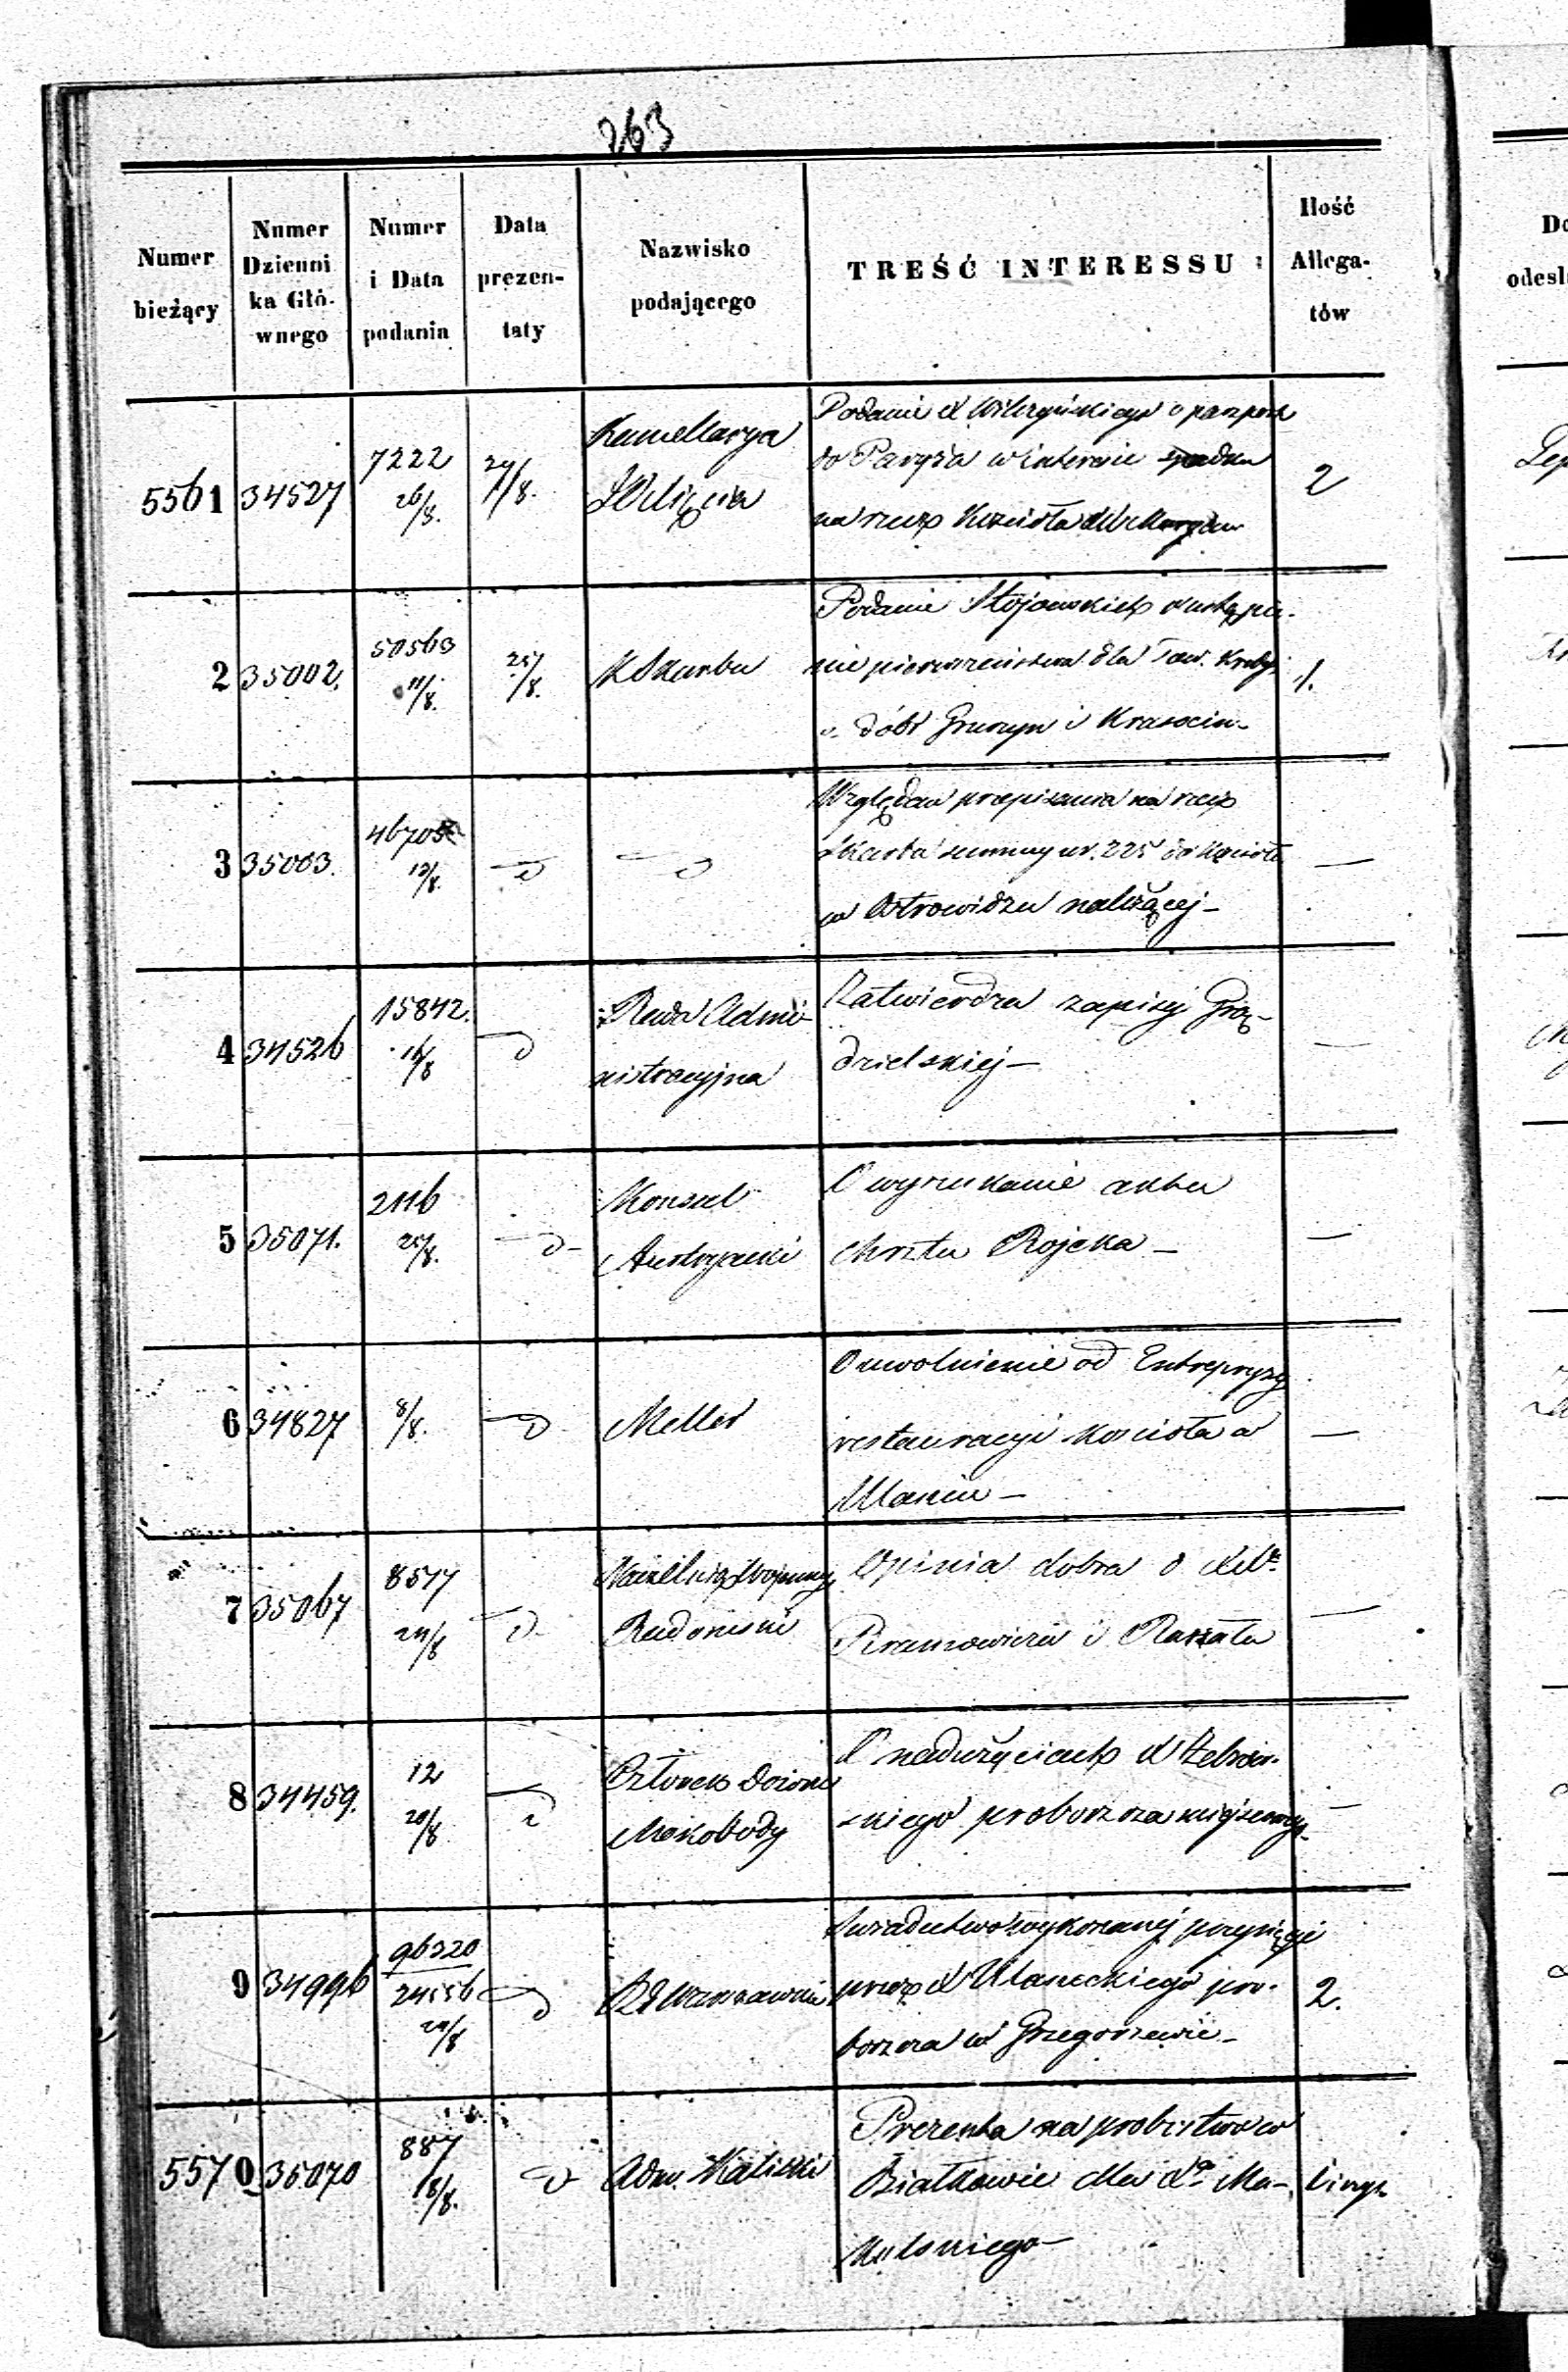 263
Numer bieżący
Numer Dzienni ka Głó- wnego
Numer i Data podania
Data prezen- taty
Nazwisko podającego
TREŚĆ INTERESSU
Ilość Allega- tów
5561 34527 7222 26/8. 29/8. Kancellarya
Podanie X o paszport
do Paryża w interesie spadku
na rzecz Kościoła
2
2 35002. 50563 11/8. 25/8. K Skarbu
Podanie Stojowskich o ustąpie-
nie pierwszeństwa dla Tow. Kredyt.
z dóbr i Krasocin-
1.
3 35003. 12/8. D
Względem przepisania na rzecz
Skarbu summy rs. 225 do Kościoła
w Ostrowidzu należącej-
—
4 34526 15842. 16/8 D Rada Admi-
nistracyjna
Zatwierdza zapisy Grą-
dzielskiej-
—
5 35071. 2116 25/8. D- Konsul
Austryacki
O wyszukanie aktu
chrztu Rojeka-
—
6 34827 8/8. D Meller
O uwolnienie od Entrepryzy
restauracyi kościoła w
Mlaniu-
—
7 35067 8577 24/8 D Naczelnik Wojenny
Radomski
Opinia dobra o
i Raszału
—
8 34459. 12 20/8 D Członek dozoru
Mokobody
O nadużyciach X Żebrow-
skiego proboszcza miejscowego
—
9 34996 96320 24556 24/8 D RG Warszawski
Świadectwo wykonanej przysięgi
przez X Ulaneckiego pro-
boszcza w Grzegorzewie-
2.
5570 35070 887 18/8. D Adm. Kaliski
Prezenta na probostwo w
Białkowie dla Xa Ma-
kulskiego-